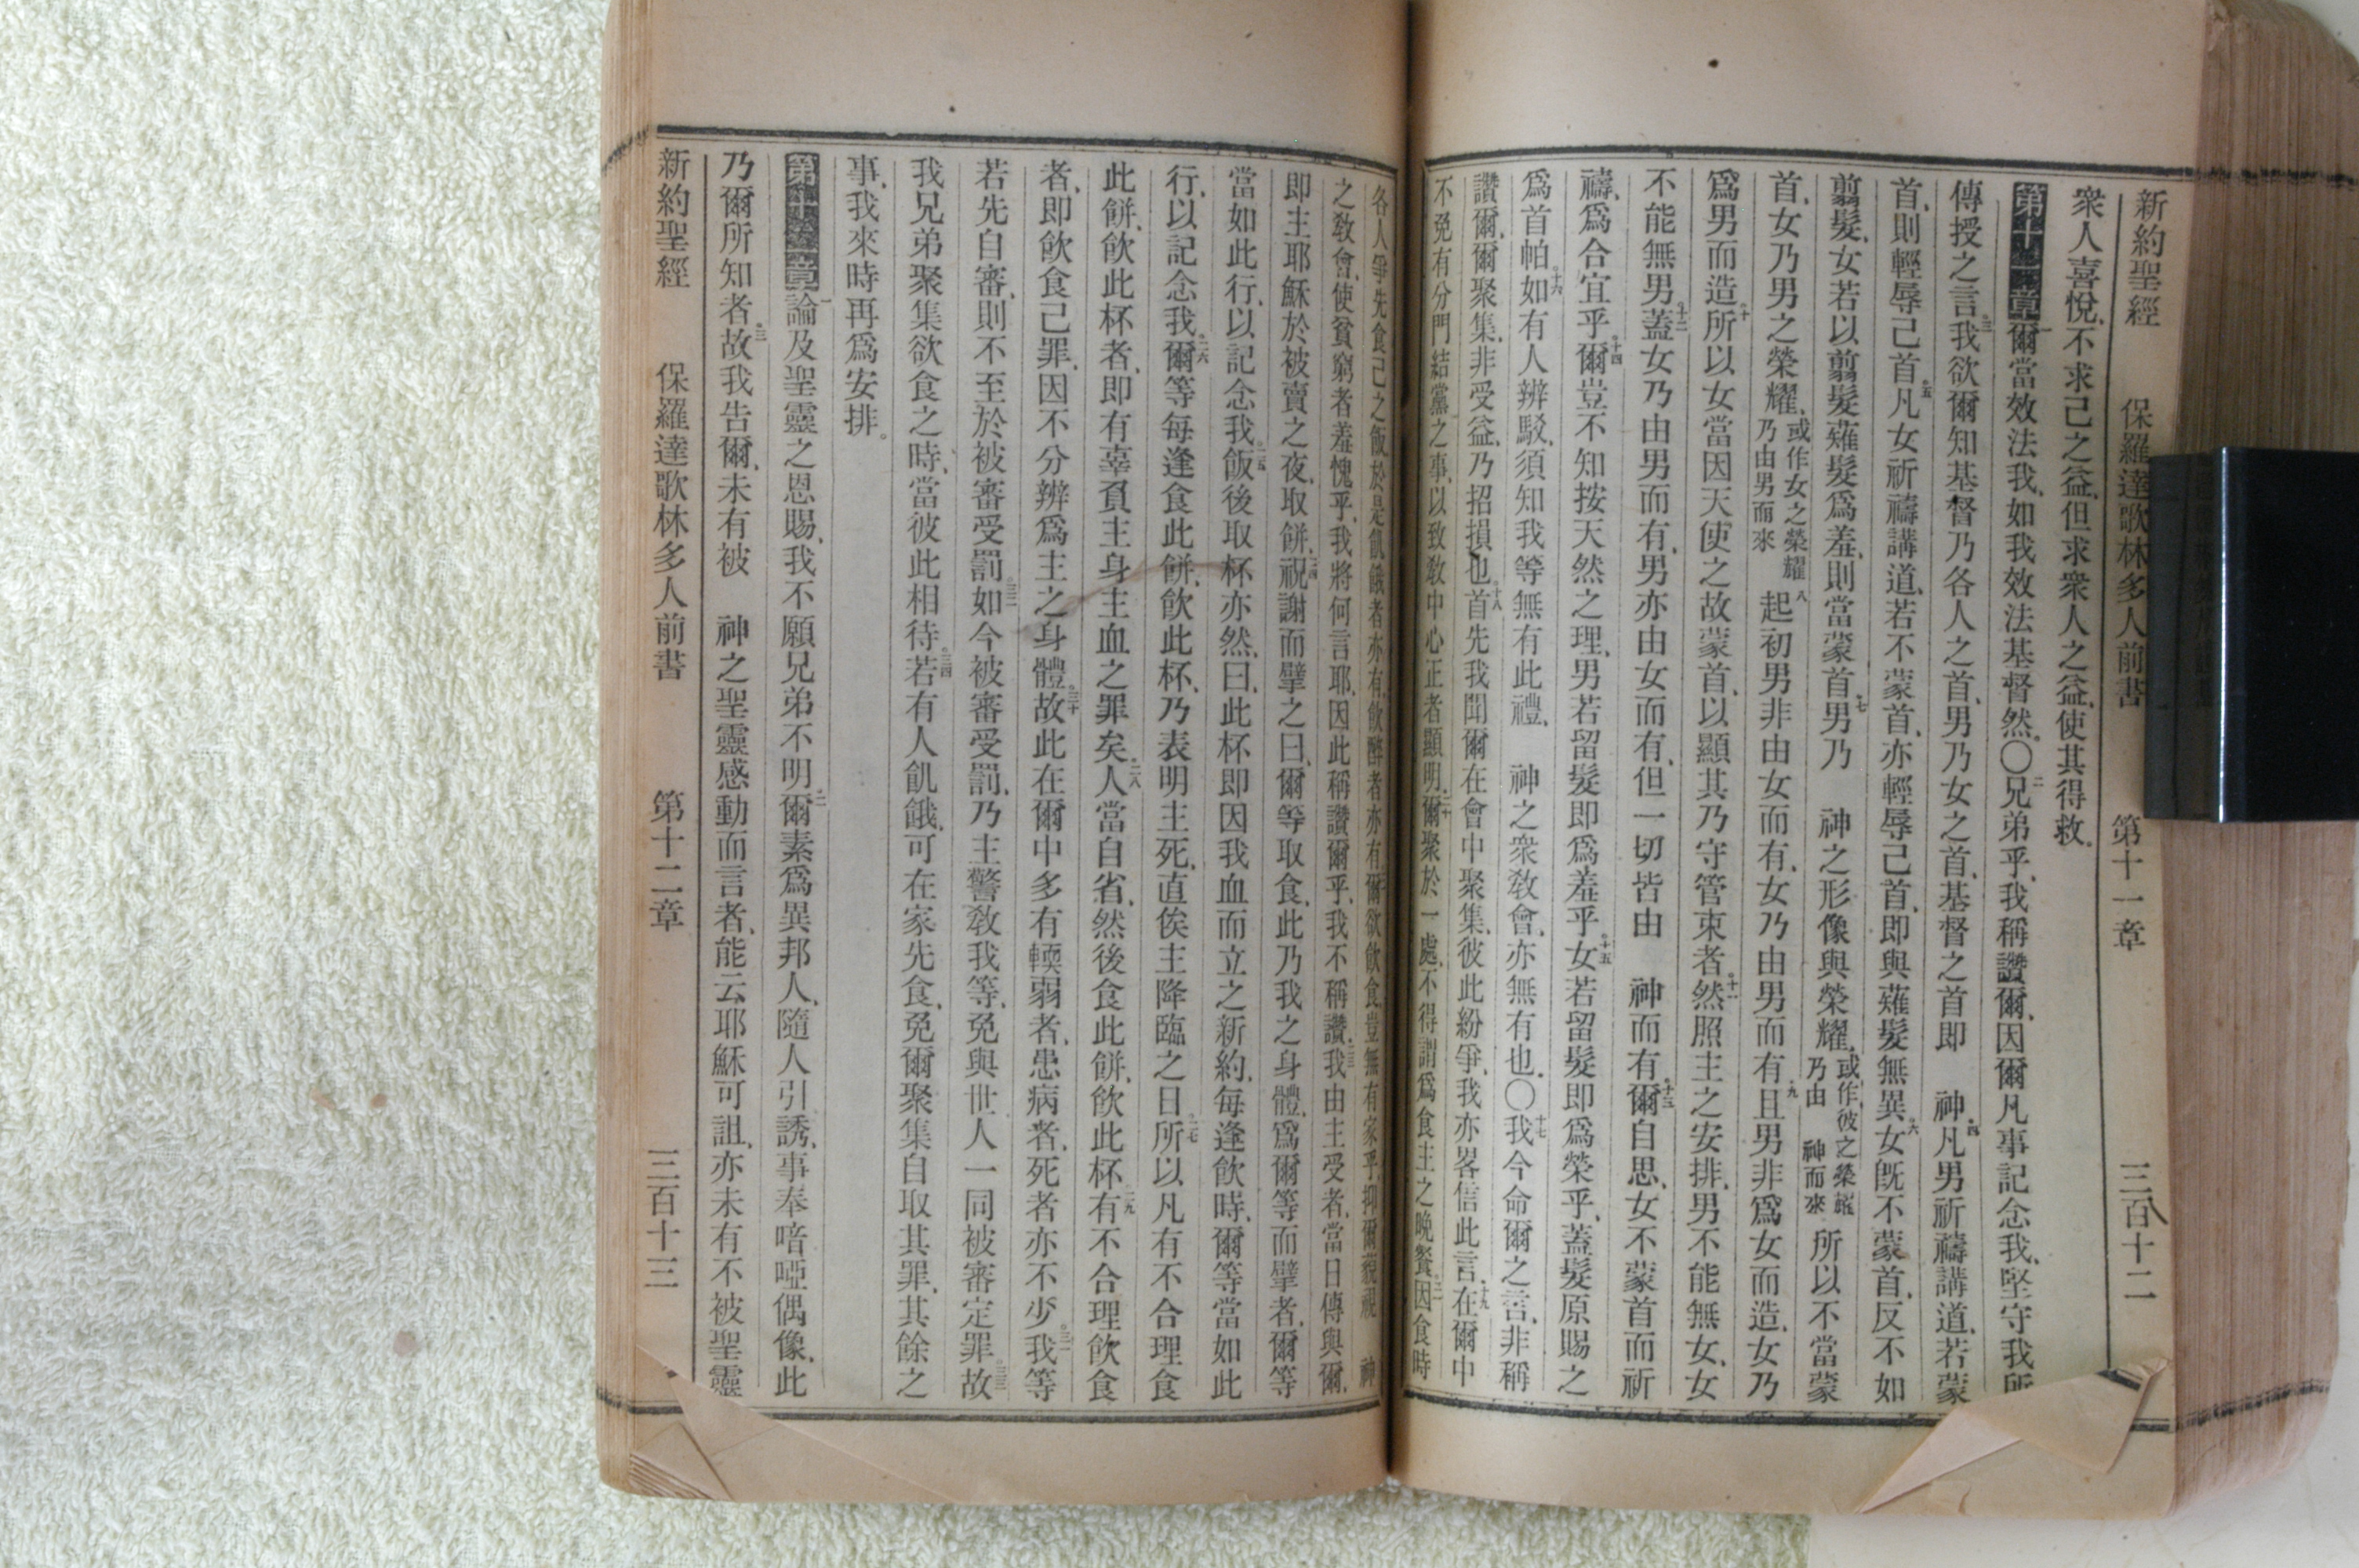 新約聖經 保羅達歌林多人前書 第十一章 三百十二
衆人喜悅、不求己之益、但求衆人之益、使其得救。
第十一章 一爾當效法我、如我效法基督然。〇二兄弟乎、我稱讚爾、因爾凡事記念我、堅守我所
傳授之言、三我欲爾知基督乃各人之首、男乃女之首、基督之首即 神、四凡男祈禱講道、若蒙
首、則輕辱己首、五凡女祈禱講道、若不蒙首、亦輕辱己首、即與薙髮無異、六女既不蒙首、反不如
翦髮、女若以翦髮薙髮爲羞、則當蒙首、七男乃 神之形像與榮耀、或作彼之榮耀乃由 神而來 所以不當蒙
首、女乃男之榮耀、或作女之榮耀乃由男而來 八起初男非由女而有、女乃由男而有、九且男非爲女而造、女乃
爲男而造、十所以女當因天使之故蒙首、以顯其乃守管束者、十一然照主之安排、男不能無女、女
不能無男、十二蓋女乃由男而有、男亦由女而有、但一切皆由 神而有、十三爾自思、女不蒙首而祈
禱、爲合宜乎、十四爾豈不知按天然之理、男若留髮即爲羞乎、十五女若留髮即爲榮乎、蓋髮原賜之
爲首帕、十六如有人辨駁、須知我等無有此禮、 神之衆敎會、亦無有也。〇十七我今命爾之言、非稱
讚爾、爾聚集、非受益、乃招損也、十八首先我聞爾在會中聚集、彼此紛爭、我亦畧信此言、十九在爾中
不免有分門結黨之事、以致敎中心正者顯明、二十爾聚於一處、不得謂爲食主之晩餐、二一因食時
各人爭先食己之飯、於是飢餓者亦有、飲醉者亦有、二二爾欲飲食、豈無有家乎、抑爾藐視 神
之敎會、使貧窮者羞愧乎、我將何言耶、因此稱讚爾乎、我不稱讚、二三我由主受者、當日傳與爾、
即主耶穌於被賣之夜、取餅、二四祝謝而擘之曰、爾等取食、此乃我之身體、爲爾等而擘者、爾等
當如此行、以記念我、二五飯後取杯亦然、曰、此杯即因我血而立之新約、每逢飲時、爾等當如此
行、以記念我、二六爾等每逢食此餅、飲此杯、乃表明主死、直俟主降臨之日、二七所以凡有不合理食
此餅、飲此杯者、即有辜負主身主血之罪矣、二八人當自省、然後食此餅、飲此杯、二九有不合理飲食
者、即飲食己罪、因不分辨爲主之身體、三十故此在爾中多有輭弱者、患病者、死者亦不少、三一我等
若先自審、則不至於被審受罰、三二如今被審受罰、乃主警敎我等、免與世人一同被審定罪、三三故
我兄弟聚集欲食之時、當彼此相待、三四若有人飢餓、可在家先食、免爾聚集自取其罪、其餘之
事、我來時再爲安排。
第十二章 一論及聖靈之恩賜、我不願兄弟不明、二爾素爲異邦人、隨人引誘、事奉喑啞偶像、此
乃爾所知者、三故我告爾、未有被 神之聖靈感動而言者、能云耶穌可詛、亦未有不被聖靈
新約聖經 保羅達歌林多人前書 第十二章 三百十三